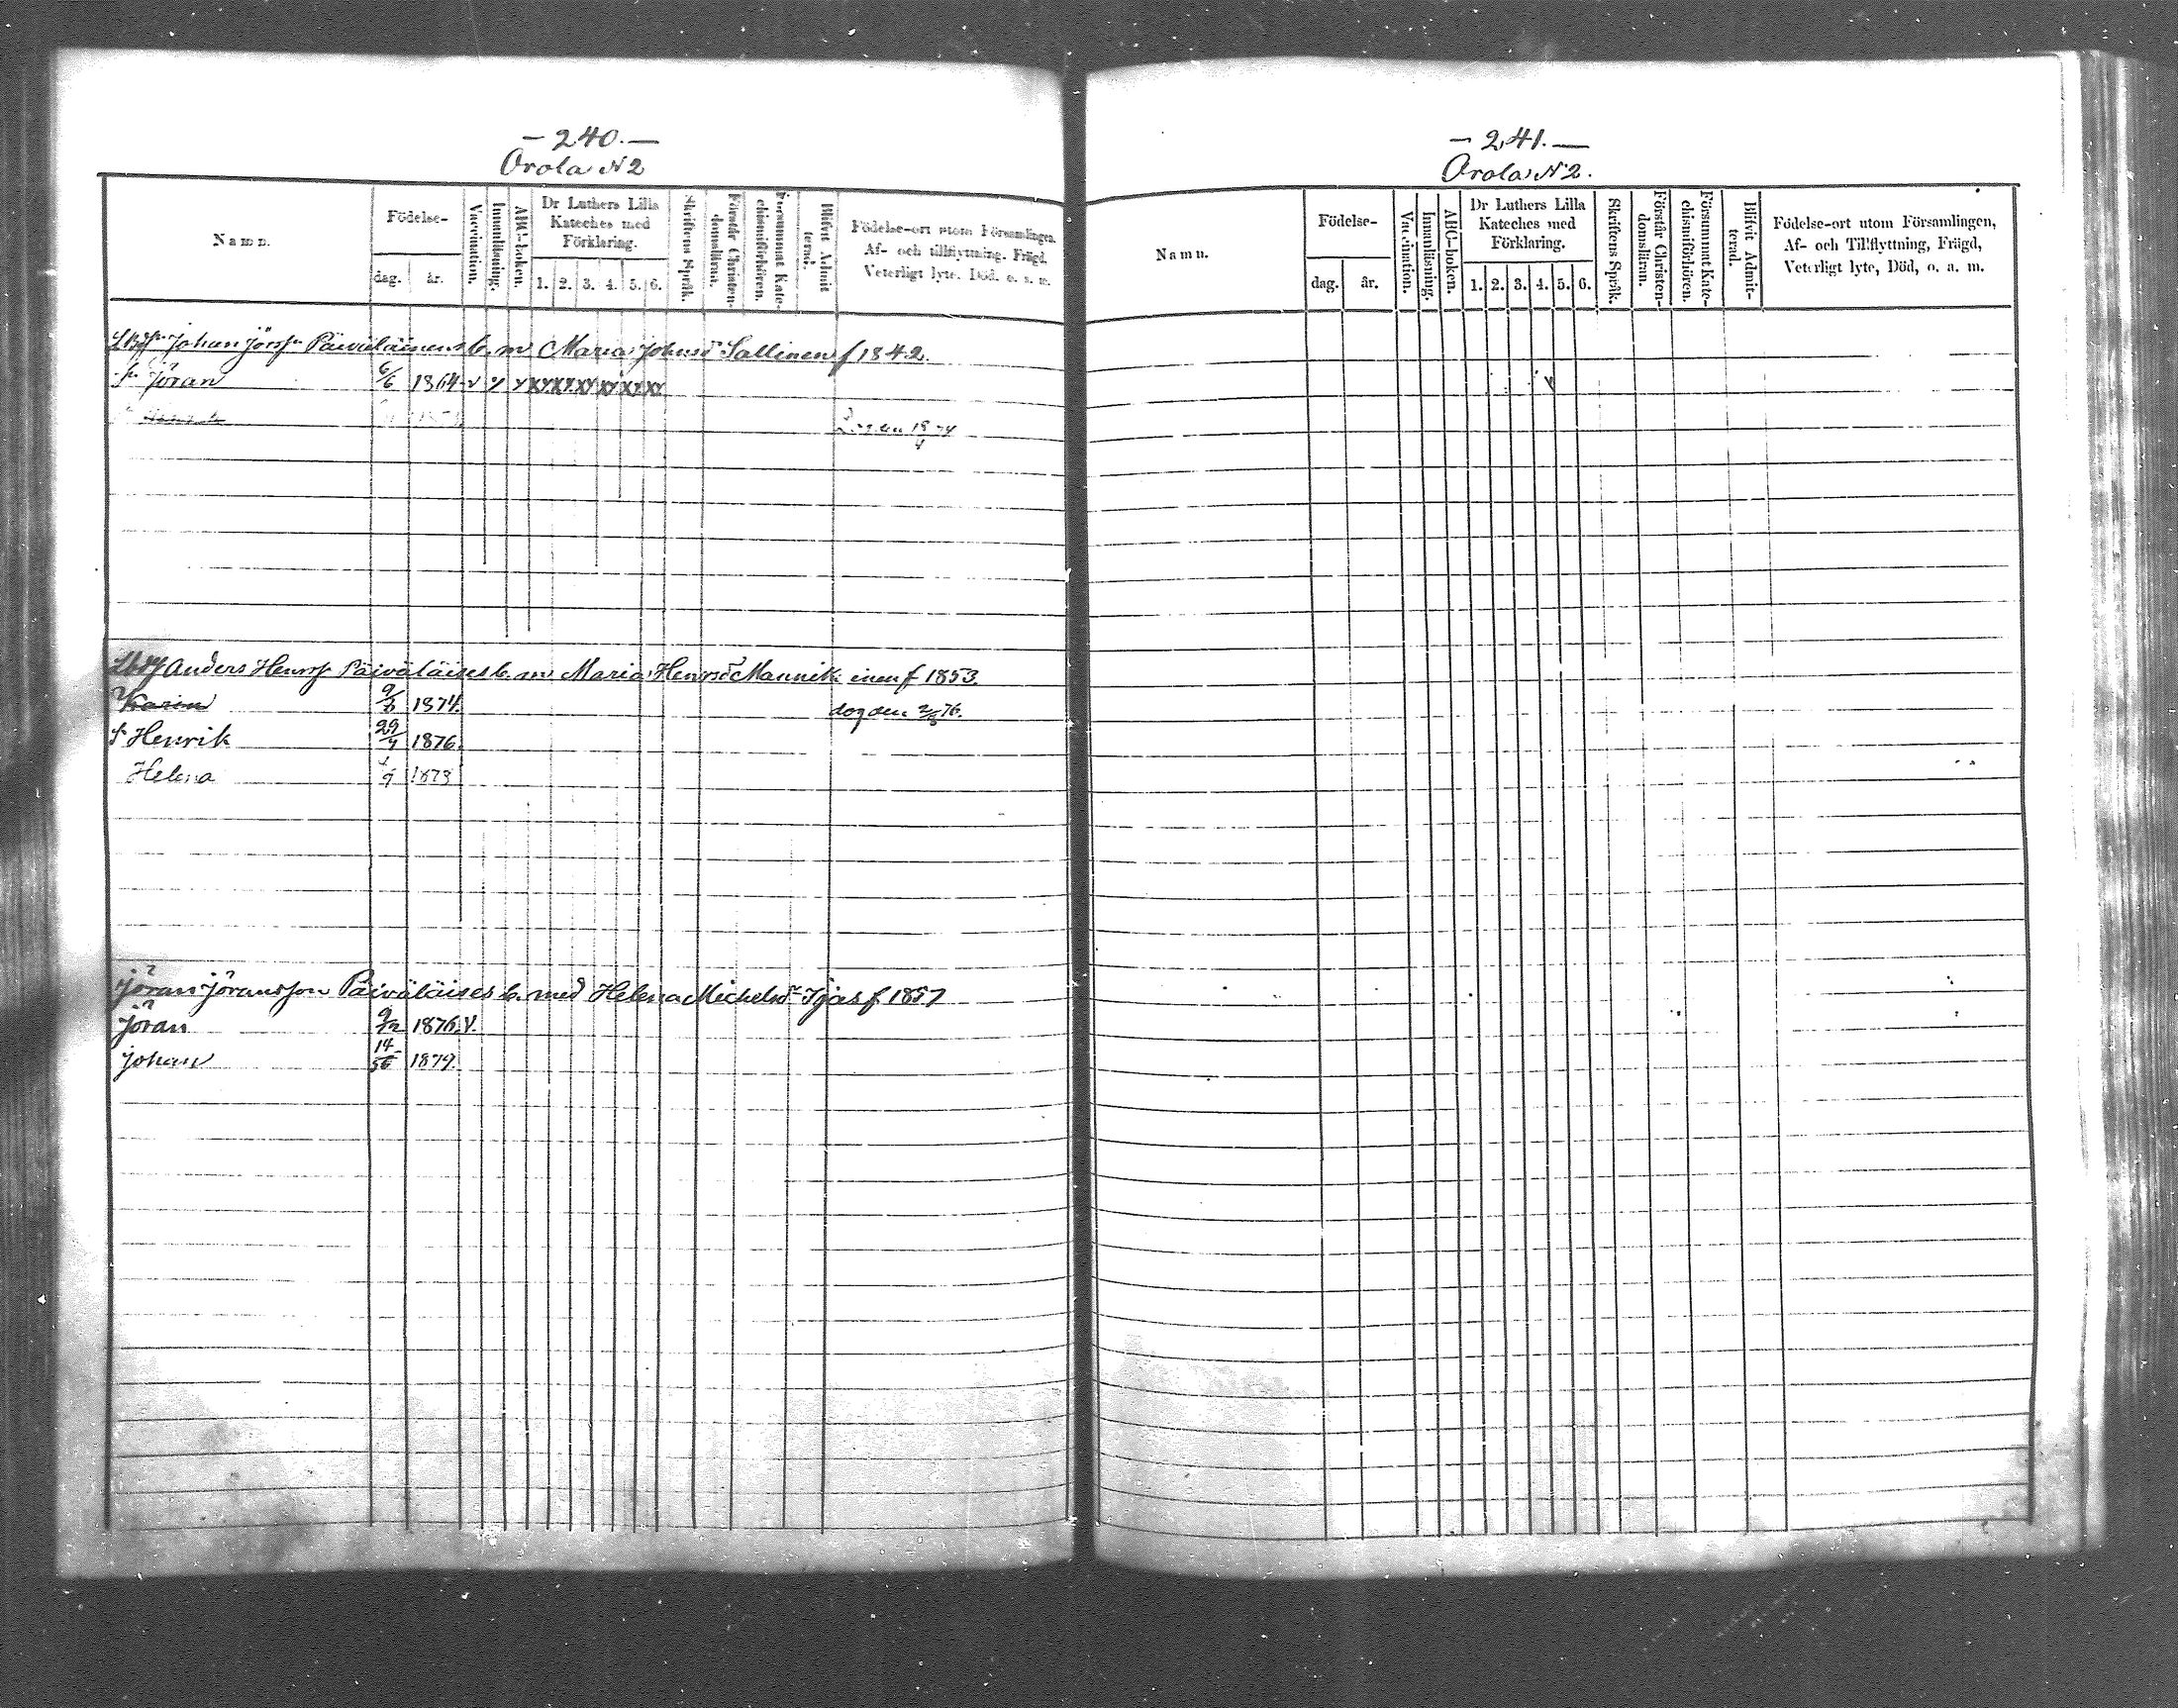 – 240. –
Orola N 2
Namn.
Födelse-
dag.
år.
Vaccination.
Innanläsning.
ABC-boken.
Dr Luthers Lilla
Kateches med
Förklaring.
1. 2. 3. 4. 5. 6.
Skriftens Språk.
Förstår Christen-
domsläran.
Försummat Kate-
chismiförhören.
Blifvit Admit-
terad.
Födelse-ort utom Församlingen,
Af- och tillflyttning, Frägd,
Veterligt lyte, Död, o. s. m.
Johan Jörsson Päiväläinens b. m Maria Johnsd Sallinen f 1842.
Sn Jöran 6/6 1864 v y y xy xy xy xy xy xy
Anders Henrss Päiväläises b. m Maria Henrsd Mannik inen f 1853.
Karin 1874. dog den 76.
S. Henrik 29/4 1876.
Helena 1873
Jöran Jöransson Päiväläises b. med Helena Michelsdr Ijas f. 1857
Jöran 9/12 1876. v.
Johan 14 1879.
– 241. –
Orola N 2.
Namn.
Födelse-
dag.
år.
Vaccination.
Innanläsning.
ABC-boken.
Dr Luthers Lilla
Kateches med
Förklaring.
1. 2. 3. 4. 5. 6.
Skriftens Språk.
Förstår Christen-
domsläran.
Försummat Kate-
chismiförhören.
Blifvit Admit-
terad.
Födelse-ort utom Församlingen,
Af- och Tillflyttning, Frägd,
Veterligt lyte, Död, o. a. m.
v